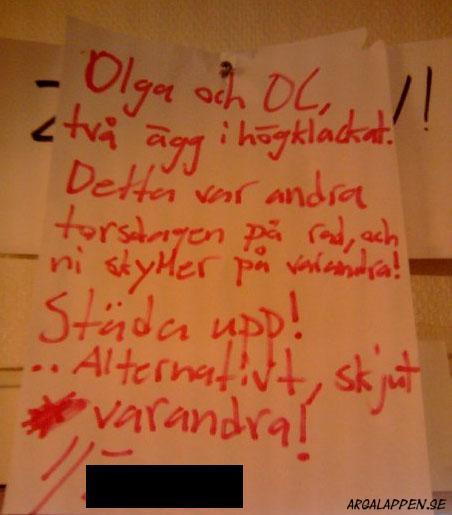 Olga och OC,
två ägg i högklackat.
Detta var andra
torsdagen på rad, och
ni skyller på varandra!
Städa upp!
.. Alternativt, skjut
varandra!
//
ARGALAPPEN.SE